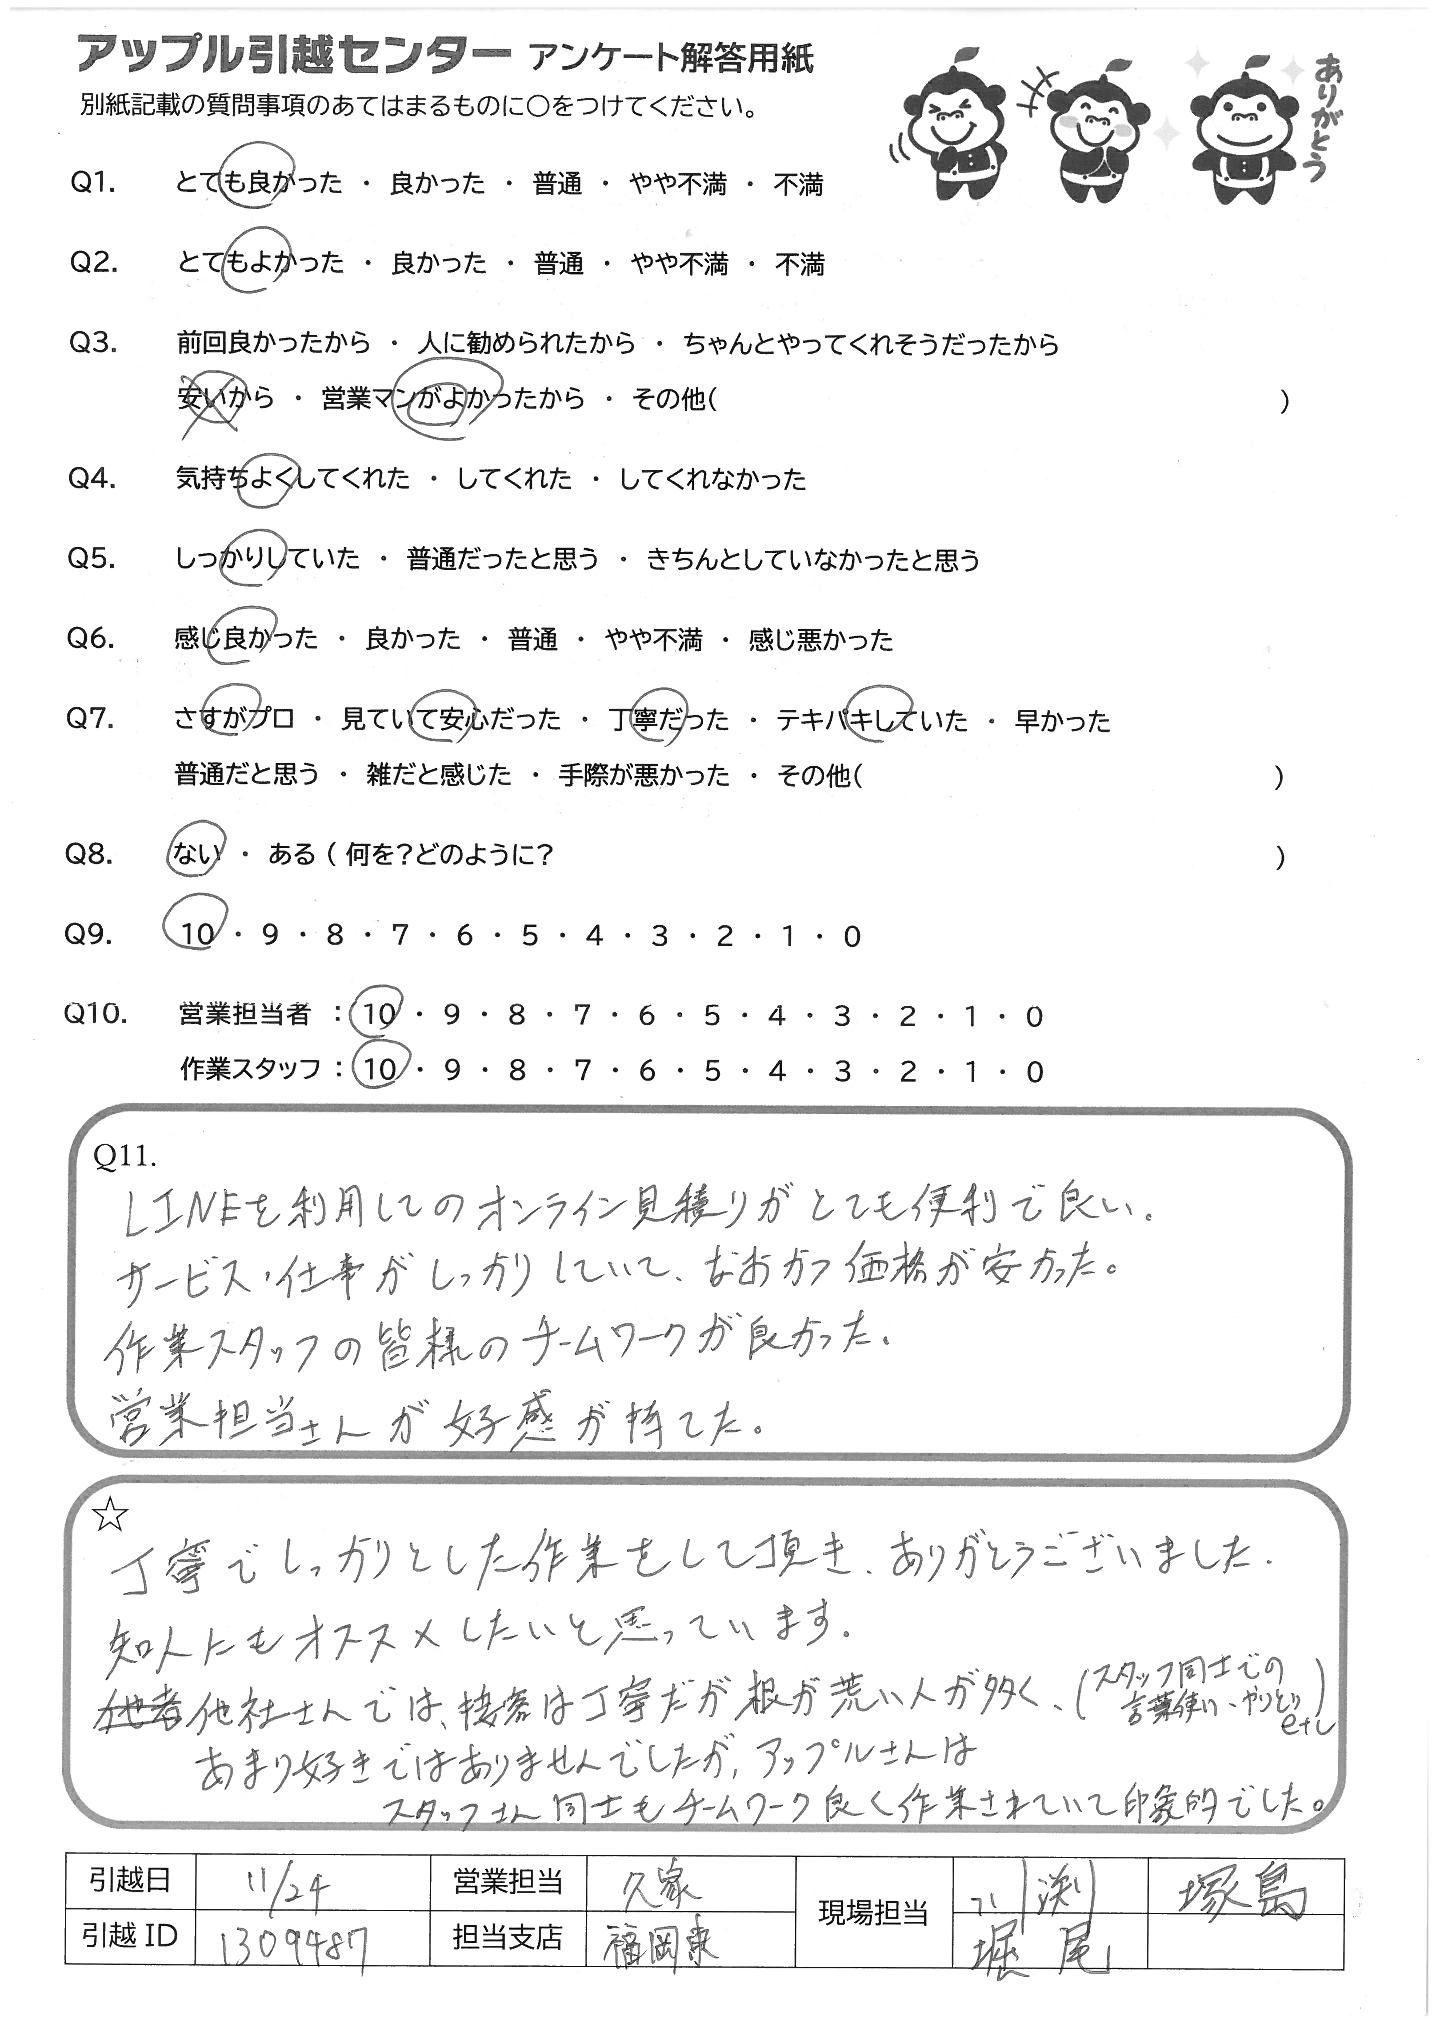 アップル引越センター アンケート解答用紙
別紙記載の質問事項のあてはまるものに○をつけてください。
ありがとう
Q1. とても良かった ・ 良かった ・ 普通 ・ やや不満 ・ 不満
Q2. とてもよかった ・ 良かった ・ 普通 ・ やや不満 ・ 不満
Q3. 前回良かったから ・ 人に勧められたから ・ ちゃんとやってくれそうだったから
安いから ・ 営業マンがよかったから ・ その他( )
Q4. 気持ちよくしてくれた ・ してくれた ・ してくれなかった
Q5. しっかりしていた ・ 普通だったと思う ・ きちんとしていなかったと思う
Q6. 感じ良かった ・ 良かった ・ 普通 ・ やや不満 ・ 感じ悪かった
Q7. さすがプロ ・ 見ていて安心だった ・ 丁寧だった ・ テキパキしていた ・ 早かった
普通だと思う ・ 雑だと感じた ・ 手際が悪かった ・ その他( )
Q8. ない ・ ある ( 何を?どのように? )
Q9. 10 ・ 9 ・ 8 ・ 7 ・ 6 ・ 5 ・ 4 ・ 3 ・ 2 ・ 1 ・ 0
Q10. 営業担当者 : 10 ・ 9 ・ 8 ・ 7 ・ 6 ・ 5 ・ 4 ・ 3 ・ 2 ・ 1 ・ 0
作業スタッフ : 10 ・ 9 ・ 8 ・ 7 ・ 6 ・ 5 ・ 4 ・ 3 ・ 2 ・ 1 ・ 0
Q11.
LINEを利用してのオンライン見積りがとても便利で良い。
サービス・仕事がしっかりしていて、なおかつ価格が安かった。
作業スタッフの皆様のチームワークが良かった。
営業担当さんが好感が持てた。
☆
丁寧でしっかりとした作業をして頂き、ありがとうございました.
知人にもオススメしたいと思っています.
他者他社さんでは、接客は丁寧だが根が荒い人が多く、(スタッフ同士での
言葉使い、やりとり etc)
あまり好きではありませんでしたが, アップルさんは
スタッフさん同士もチームワーク良く作業されていて印象的でした。
引越日 11/24 営業担当 久家 現場担当 小渕 塚島
引越ID 1309487 担当支店 福岡東 堀尾